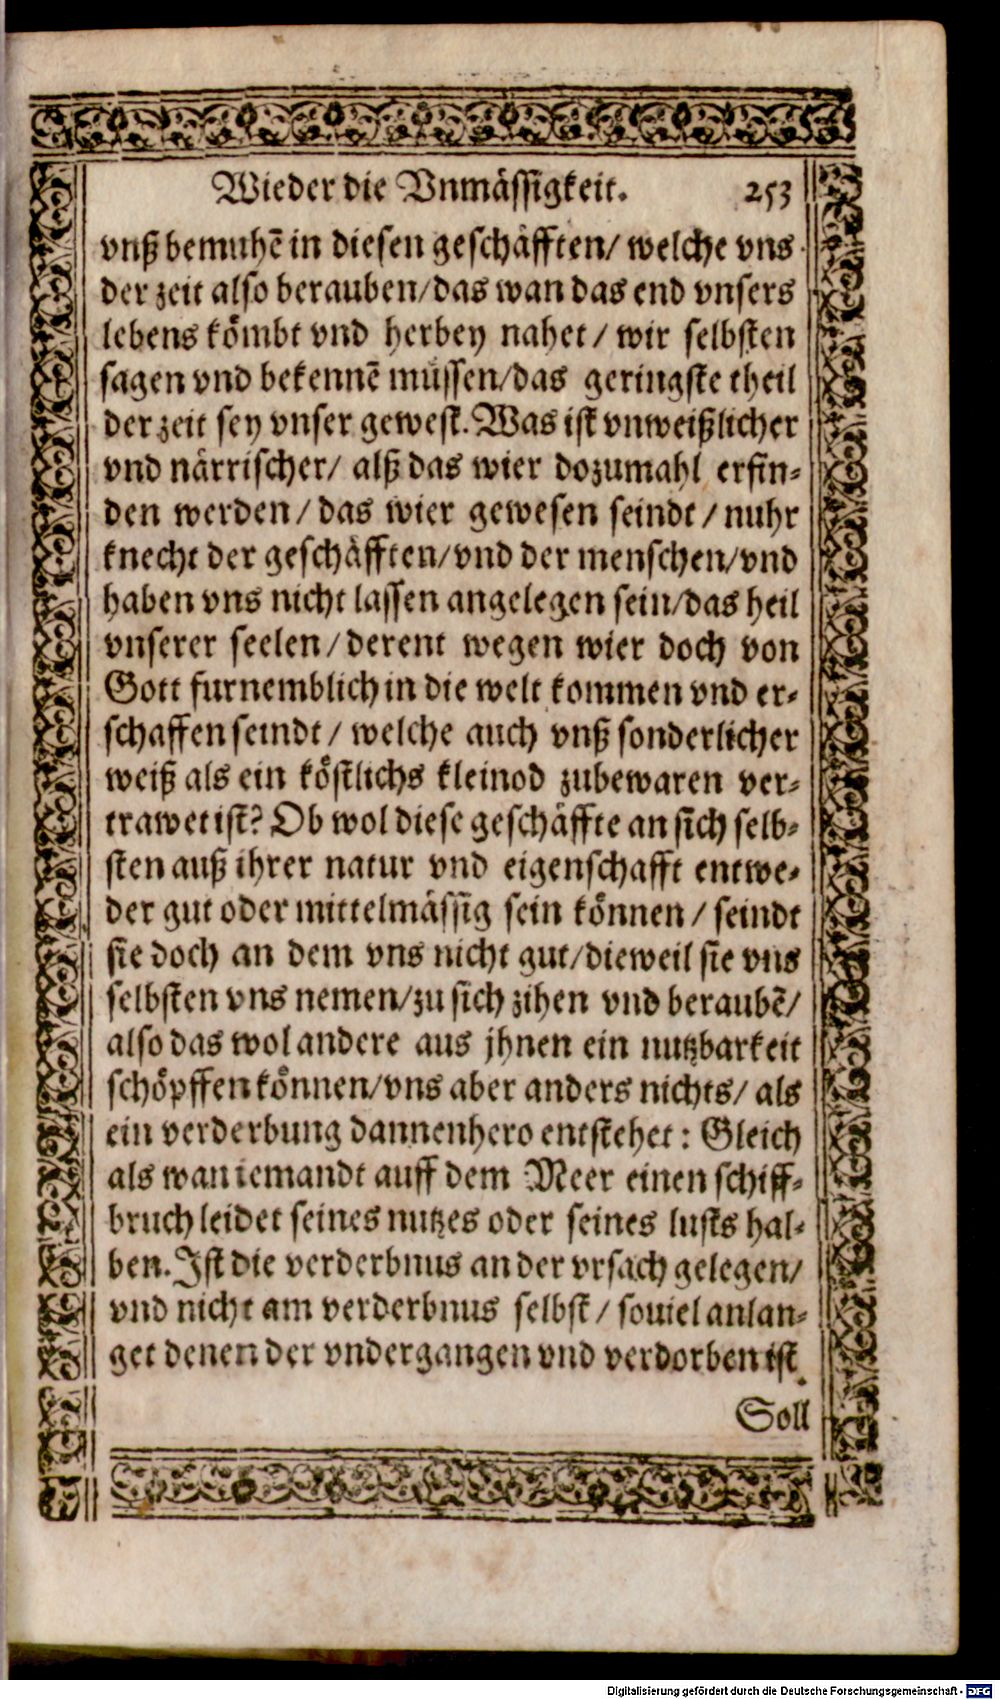 Wieder die Vnmässigkeit. 253
vnß bemuhē in diesen geschäfften/ welche vns
der zeit also berauben/das wan das end vnsers
lebens kömbt vnd herbey nahet/ wir selbsten
sagen vnd bekennē müssen/das geringste theil
der zeit sey vnser gewest. Was ist vnweißlicher
vnd närrischer/ alß das wier dozumahl erfin-
den werden/ das wier gewesen seindt/ nuhr
knecht der geschäfften/vnd der menschen/vnd
haben vns nicht lassen angelegen sein/das heil
vnserer seelen/derent wegen wier doch von
Gott furnemblich in die welt kommen vnd er-
schaffen seindt/ welche auch vnß sonderlicher
weiß als ein köstlichs kleinod zubewaren ver-
trawet ist? Ob wol diese geschäffte an sich selb-
sten auß ihrer natur vnd eigenschafft entwe-
der gut oder mittelmässig sein können/ seindt
sie doch an dem vns nicht gut/dieweil sie vns
selbsten vns nemen/zu sich zihen vnd beraubē/
also das wol andere aus jhnen ein nutzbarkeit
schöpffen können/vns aber anders nichts/ als
ein verderbung dannenhero entstehet: Gleich
als wan iemandt auff dem Meer einen schiff-
bruch leidet seines nutzes oder seines lusts hal-
ben. Ist die verderbnus an der vrsach gelegen/
vnd nicht am verderbnus selbst/ souiel anlan-
get denen der vndergangen vnd verdorben ist.
Soll
Digitalisierung gefördert durch die Deutsche Forschungsgemeinschaft - DFG